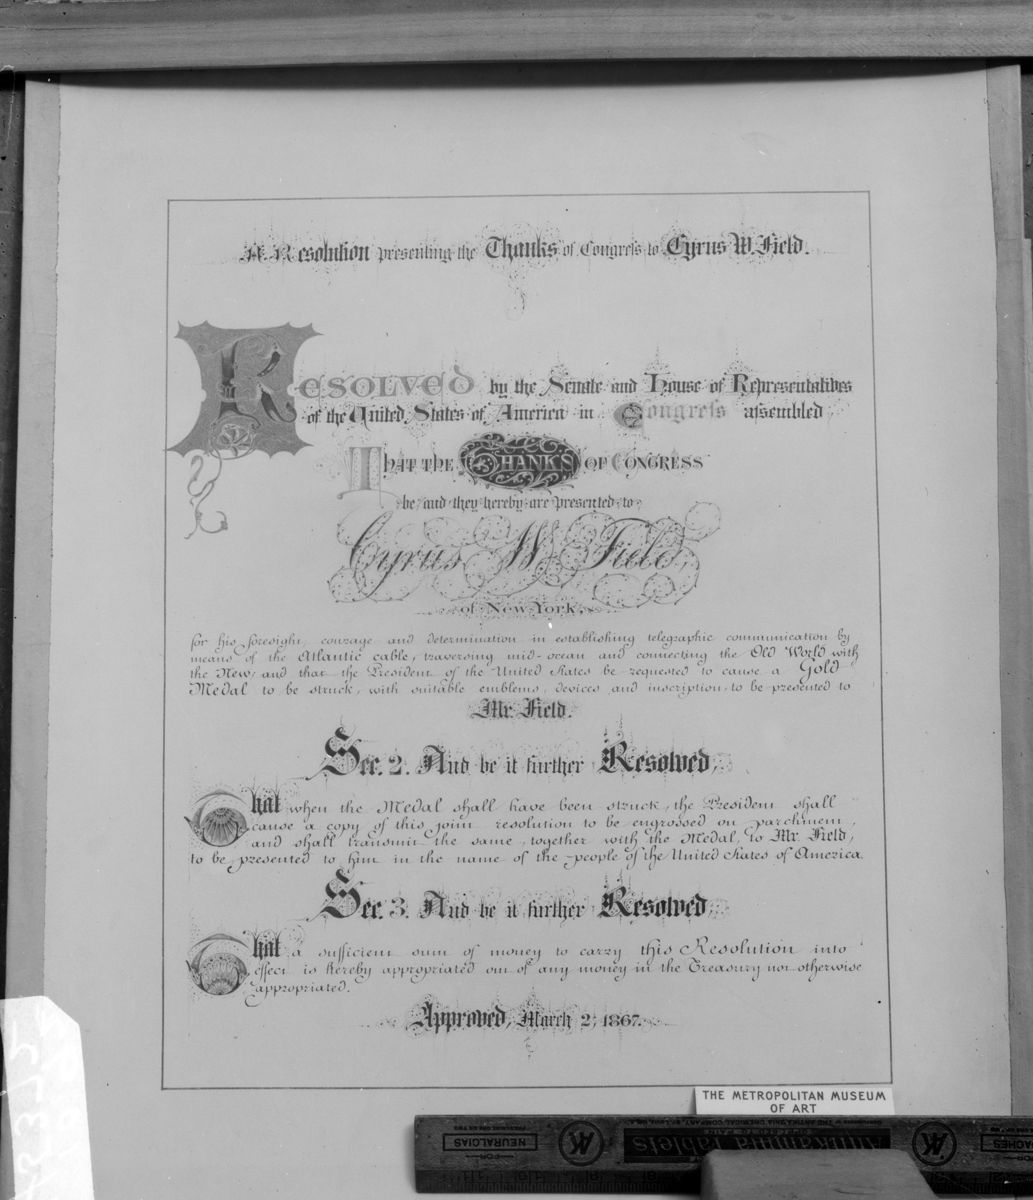 A Resolution presenting the Thanks of Congress to Cyrus W. Field.
Resolved by the Senate and House of Representatives
of the United States of America in Congress assembled
That the Thanks of Congress
be, and they hereby are presented to
Cyrus W. Field,
of New York,
for his foresight, courage and determination in establishing telegraphic communication by
means of the Atlantic cable, traversing mid-ocean and connecting the Old World with
the New; and that the President of the United States be requested to cause a Gold
Medal to be struck, with suitable emblems, devices and inscription, to be presented to
Mr. Field.
Sec. 2. And be it further Resolved,
That when the Medal shall have been struck, the President shall
cause a copy of this joint resolution to be engrossed on parchment,
and shall transmit the same, together with the Medal, to Mr. Field,
to be presented to him in the name of the people of the United States of America
Sec. 3. And be it further Resolved,
That a sufficient sum of money to carry this Resolution into
effect is hereby appropriated out of any money in the Treasury not otherwise
appropriated.
Approved, March 2, 1867.
THE METROPOLITAN MUSEUM
OF ART
FOR
NEURALGIAS
AK
Antikamnia Tablets
AK